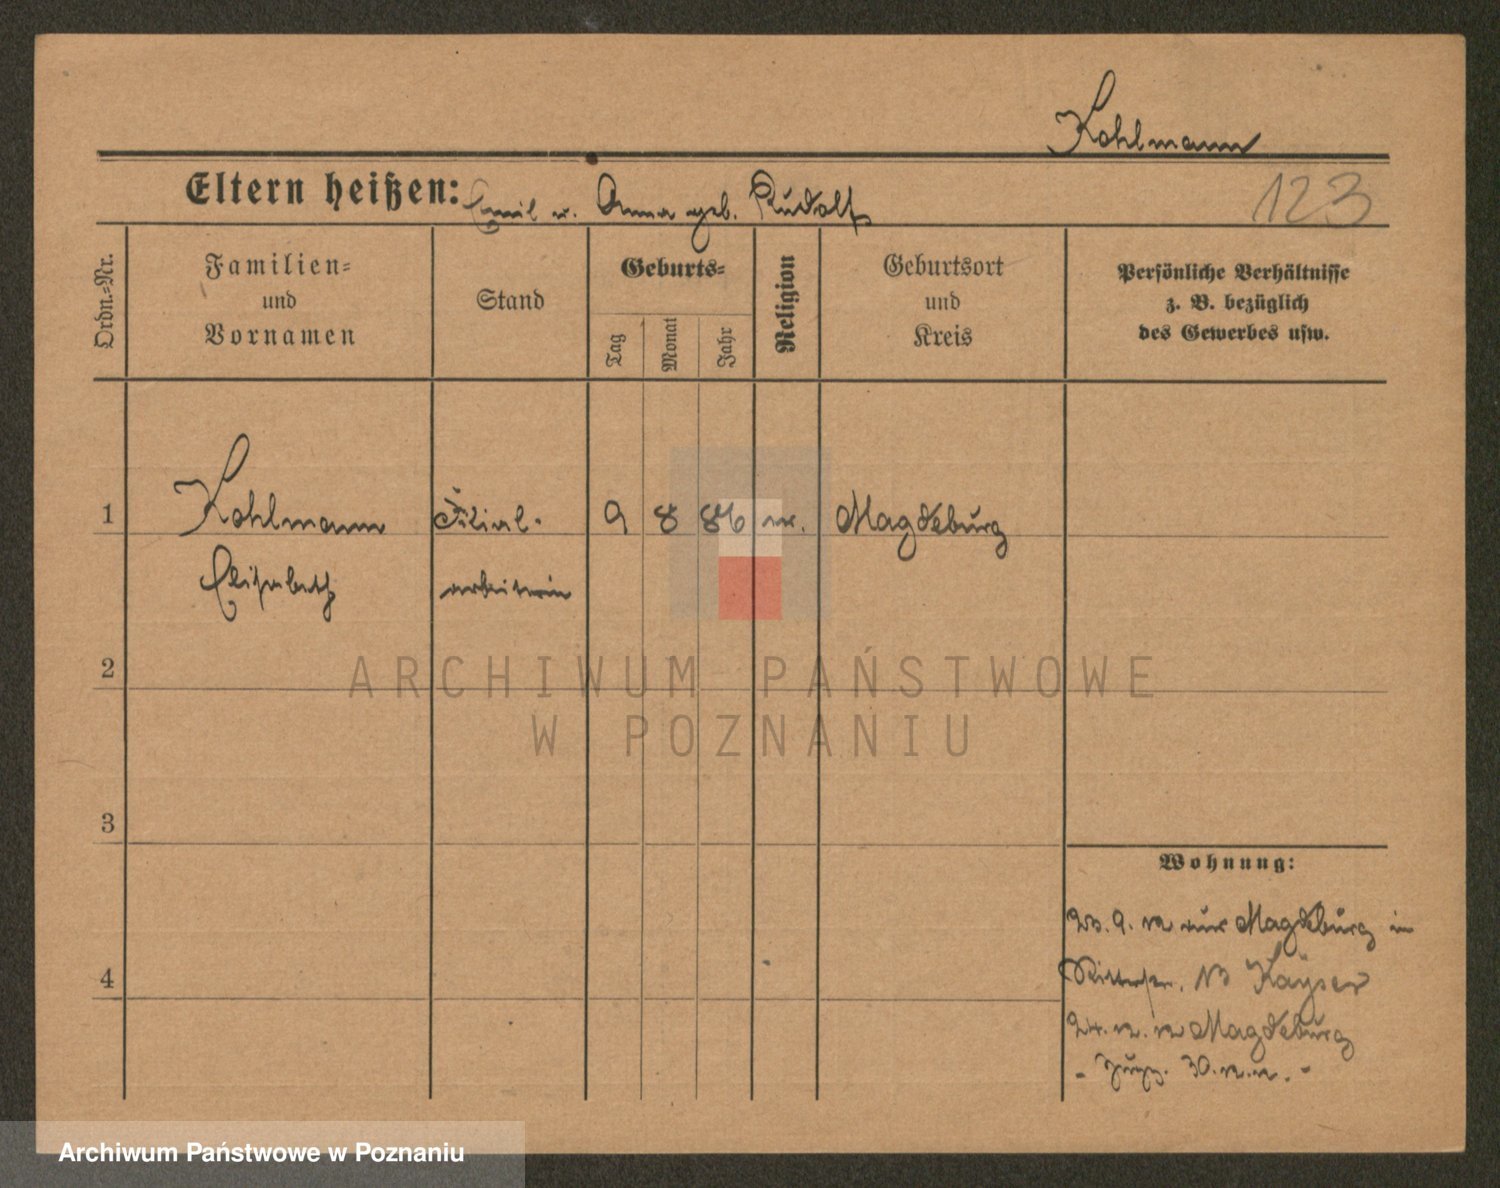 Kohlmann
Eltern heißen: Emil u. Anna geb. Rudolf
123
Ordn.-Nr.
Familien-
und
Vornamen
Stand
Geburts-
Tag
Monat
Jahr
Religion
Geburtsort
und
Kreis
Persönliche Verhältnisse
z. B. bezüglich
des Gewerbes usw.
1
Kohlmann
Elisabeth
Filial-
arbeiterin
9 8 86
Magdeburg
2
3
4
Wohnung:
9. aus Magdeburg in
Kayser
Magdeburg
30.
ARCHIWUM PAŃSTWOWE
W POZNANIU
Archiwum Państwowe w Poznaniu